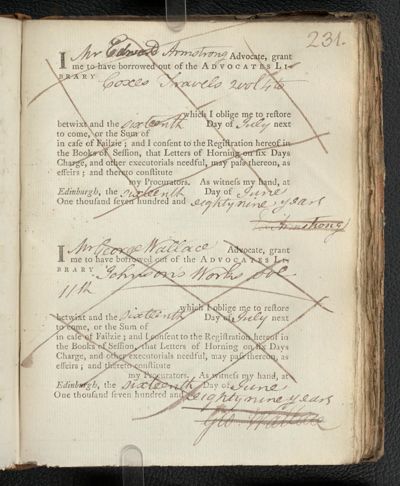 231.
I Mr Edward Armstrong Advocate, grant
me to have borrowed out of the ADVOCATES LI-
BRARY Coxes Travels 2 vol 4to
which I oblige me to restore
betwixt and the sixteenth Day of July next
to come, or the Sum of
in case of Failzie; and I consent to the Registration hereof in
the Books of Session, that Letters of Horning on six Days
Charge, and other executorials needful, may pass thereon, as
effeirs; and thereto constitute
my Procurators. As witness my hand, at
Edinburgh, the sixteenth Day of June
One thousand seven hundred and eighty nine years
Armstrong
I Mr George Wallace Advocate, grant
me to have borrowed out of the ADVOCATES LI-
BRARY Johnsons Works vol
11th
which I oblige me to restore
betwixt and the sixteenth Day of July next
to come, or the Sum of
in case of Failzie; and I consent to the Registration hereof in
the Books of Session, that Letters of Horning on six Days
Charge, and other executorials needful, may pass thereon, as
effeirs; and thereto constitute
my Procurators. As witness my hand, at
Edinburgh, the sixteenth Day of June
One thousand seven hundred and eighty nine years
Geo Wallace